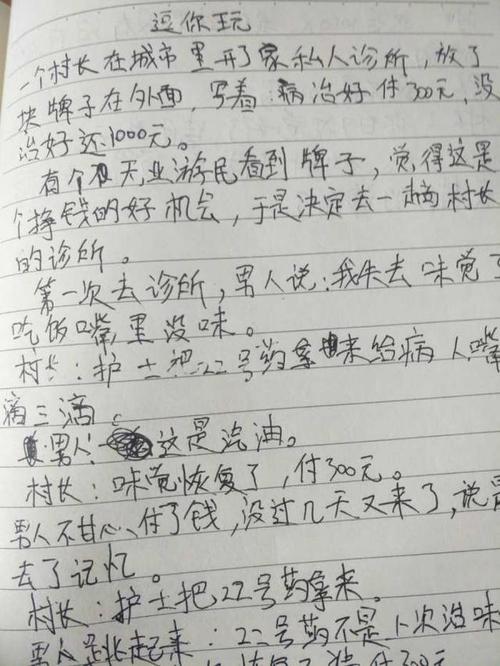 逗你玩
一个村长在城市里开了家私人诊所，放了
块牌子在外面，写着：病治好付300元，没
治好还1000元。
有个天业游民看到牌子，觉得这是
个挣钱的好机会，于是决定去一趟村长
的诊所。
第一次去诊所，男人说：我失去味觉了
吃饭嘴里没味。
村长：护士把22号药拿来给病人嘴
滴三滴。
男人：这是汽油。
村长：味觉恢复了，付300元。
男人不甘心付了钱，没过几天又来了，说是
去了记忆。
村长：护士把22号药拿来。
男人跳起来：22号药不是上次治味
恢复了 付300元